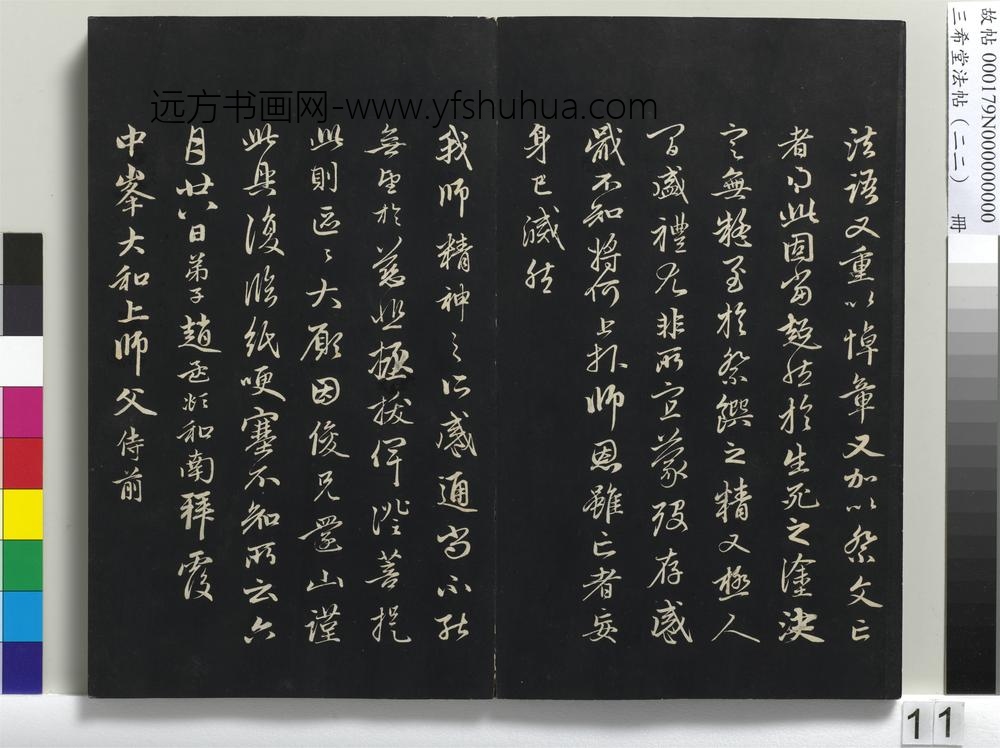 法語又重以悼章又加以祭文亡
者得此固當超然於生死之塗決
定無疑至於祭饌之精又極人
間盛禮尤非所宜蒙歿存感
戢不知將何上報師恩雖亡者妄
身已滅然
我師精神之所感通尚不能
無望於慈悲拯拔俾證菩提
此則區區大願因俊兄還山謹
此具復臨紙哽塞不知所云六
月廿八日弟子趙孟頫和南拜覆
中峯大和上師父侍前
远方书画网-www.yfshuhua.com
故帖 000179N000000000
三希堂法帖（二二） 冊
11